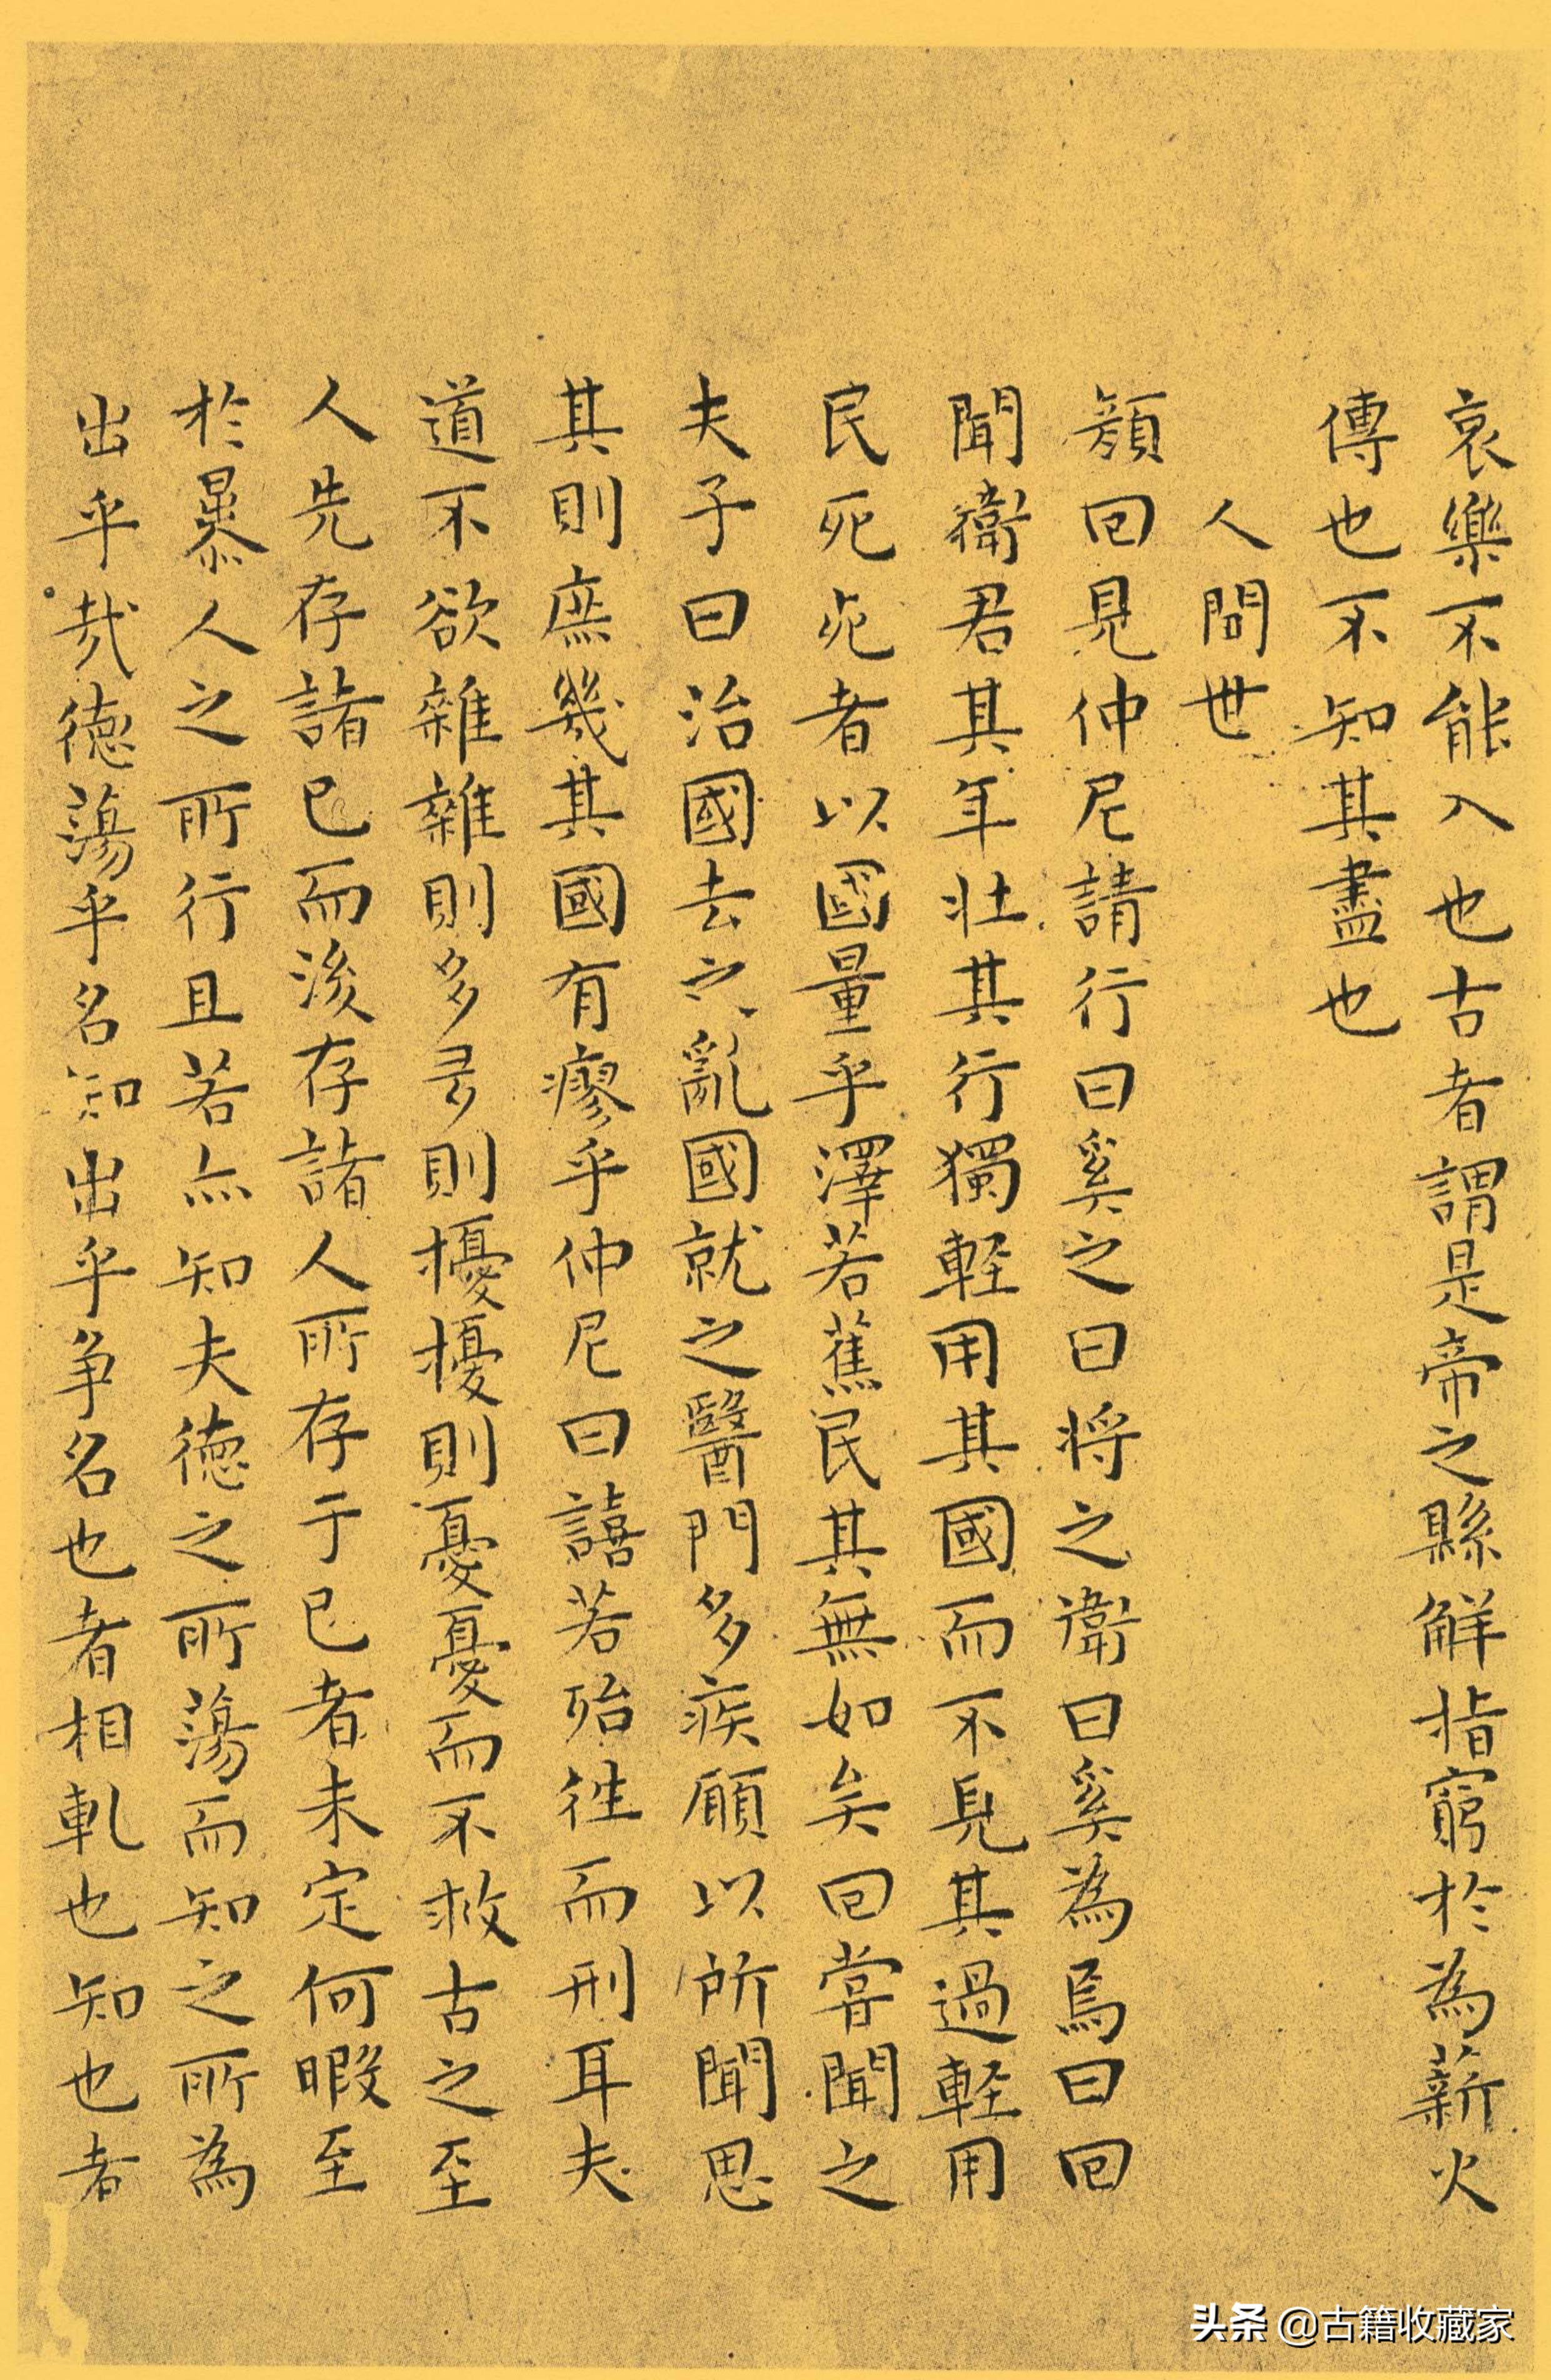 哀樂不能入也古者謂是帝之縣解指窮於為薪火
傳也不知其盡也
人間世
顏回見仲尼請行曰奚之曰将之衛曰奚為焉曰回
聞衛君其年壯其行獨軽用其國而不見其過軽用
民死死者以國量乎澤若蕉民其無如矣回嘗聞之
夫子曰治國去之亂國就之醫門多疾願以所聞思
其則庶幾其國有瘳乎仲尼曰譆若殆往而刑耳夫
道不欲雜雜則多多則擾擾則憂憂而不救古之至
人先存諸已而後存諸人所存于已者未定何暇至
於暴人之所行且若亦知夫德之所蕩而知之所為
出乎㦲德蕩乎名知出乎争名也者相軋也知也者
头条 @古籍收藏家